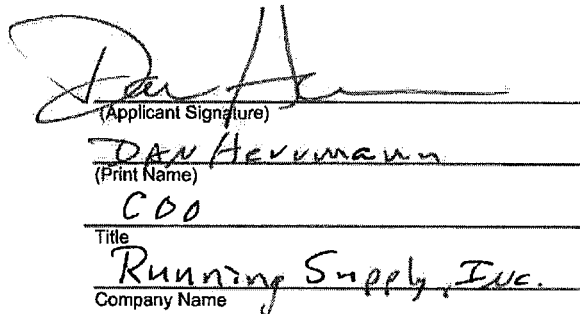 Dan H
(Applicant Signature)
DAN Herrmann
(Print Name)
COO
Title
Running Supply, Inc.
Company Name